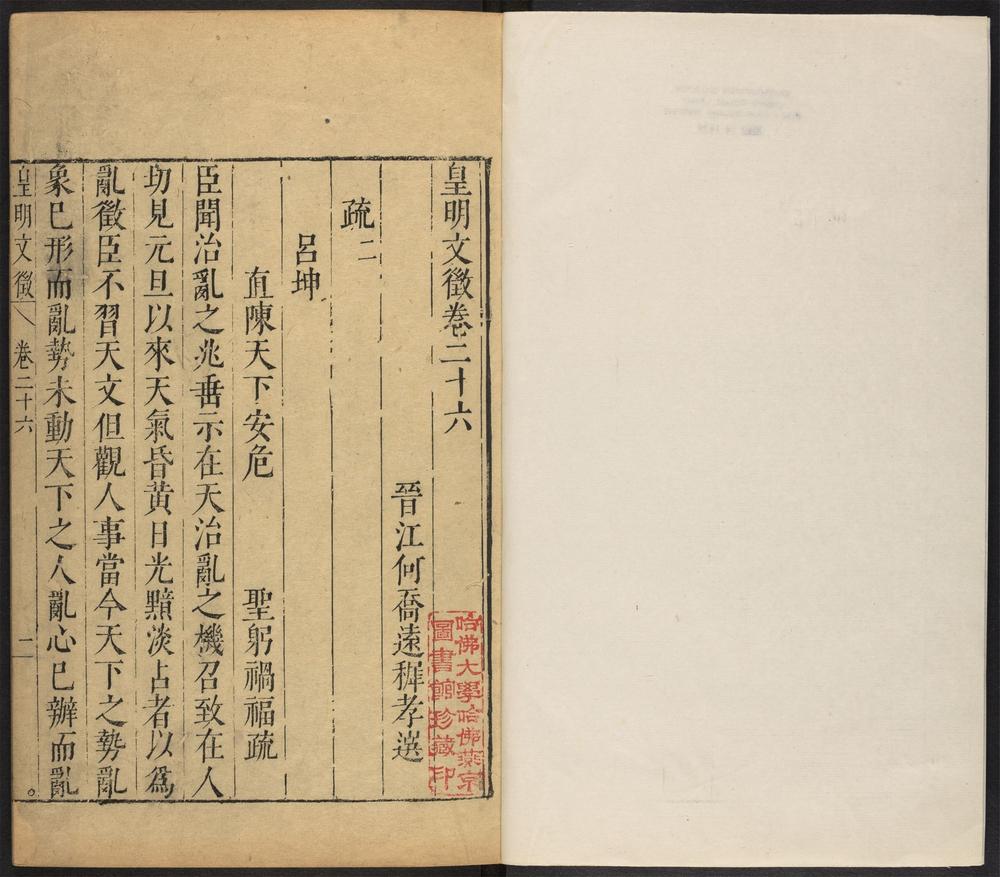 皇明文徵卷二十六
晉江何喬遠穉孝選
疏二
呂坤
直陳天下安危 聖躬禍福疏
臣聞治亂之兆垂示在天治亂之機召致在人
切見元旦以來天氣昏黃日光黯淡占者以爲
亂徵臣不習天文但觀人事當今天下之勢亂
象已形而亂勢未動天下之人亂心已辦而亂
皇明文徵 卷二十六 二
哈佛大學哈佛燕京
圖書館珍藏印